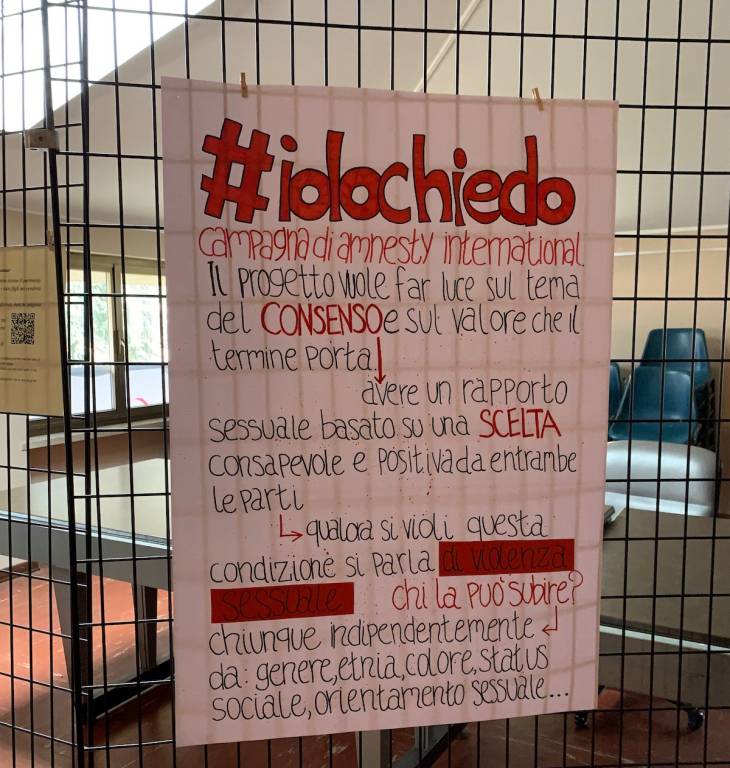 #iolochiedo
campagna di amnesty international
Il progetto vuole far luce sul tema
del CONSENSO e sul valore che il
termine porta.
avere un rapporto
sessuale basato su una SCELTA
consapevole e positiva da entrambe
le parti
qualora si violi questa
condizione si parla di violenza
sessuale chi la può subire?
chiunque indipendentemente
da: genere, etnia, colore, status
sociale, orientamento sessuale...